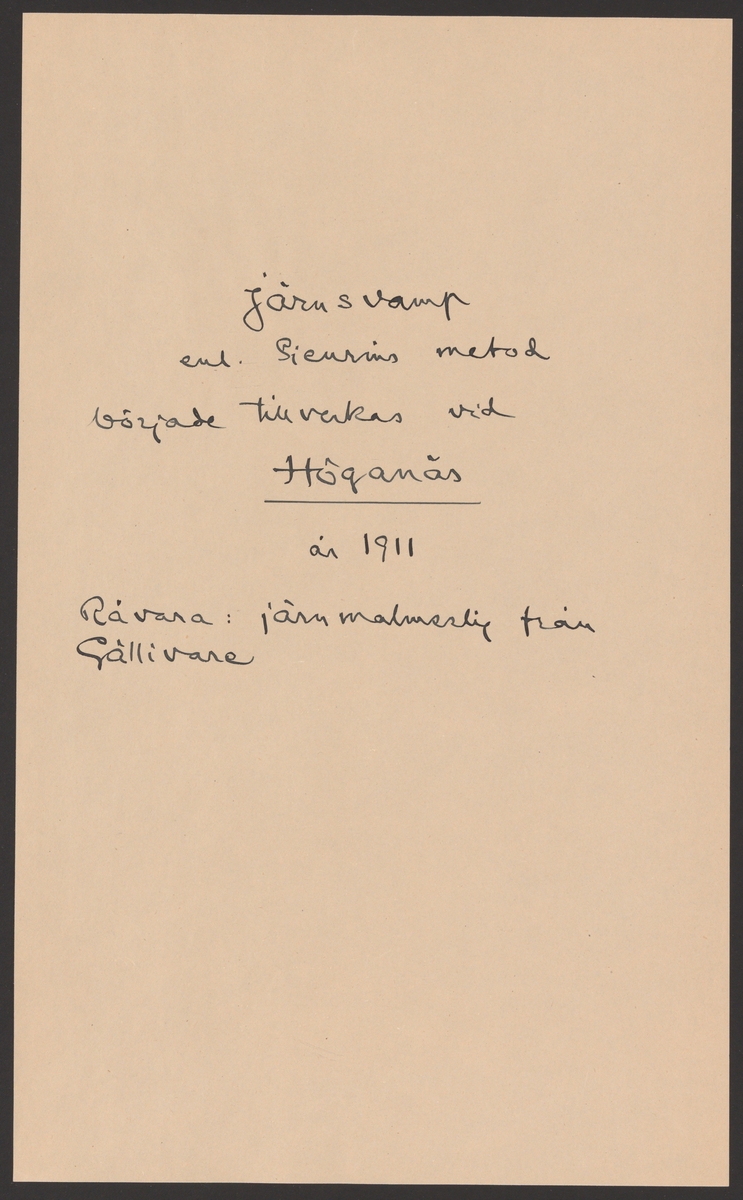 Järnsvamp
enl. Sieurins metod
började tillverkas vid
Höganäs
år 1911
Råvara: järnmalmsslig från
Gällivare